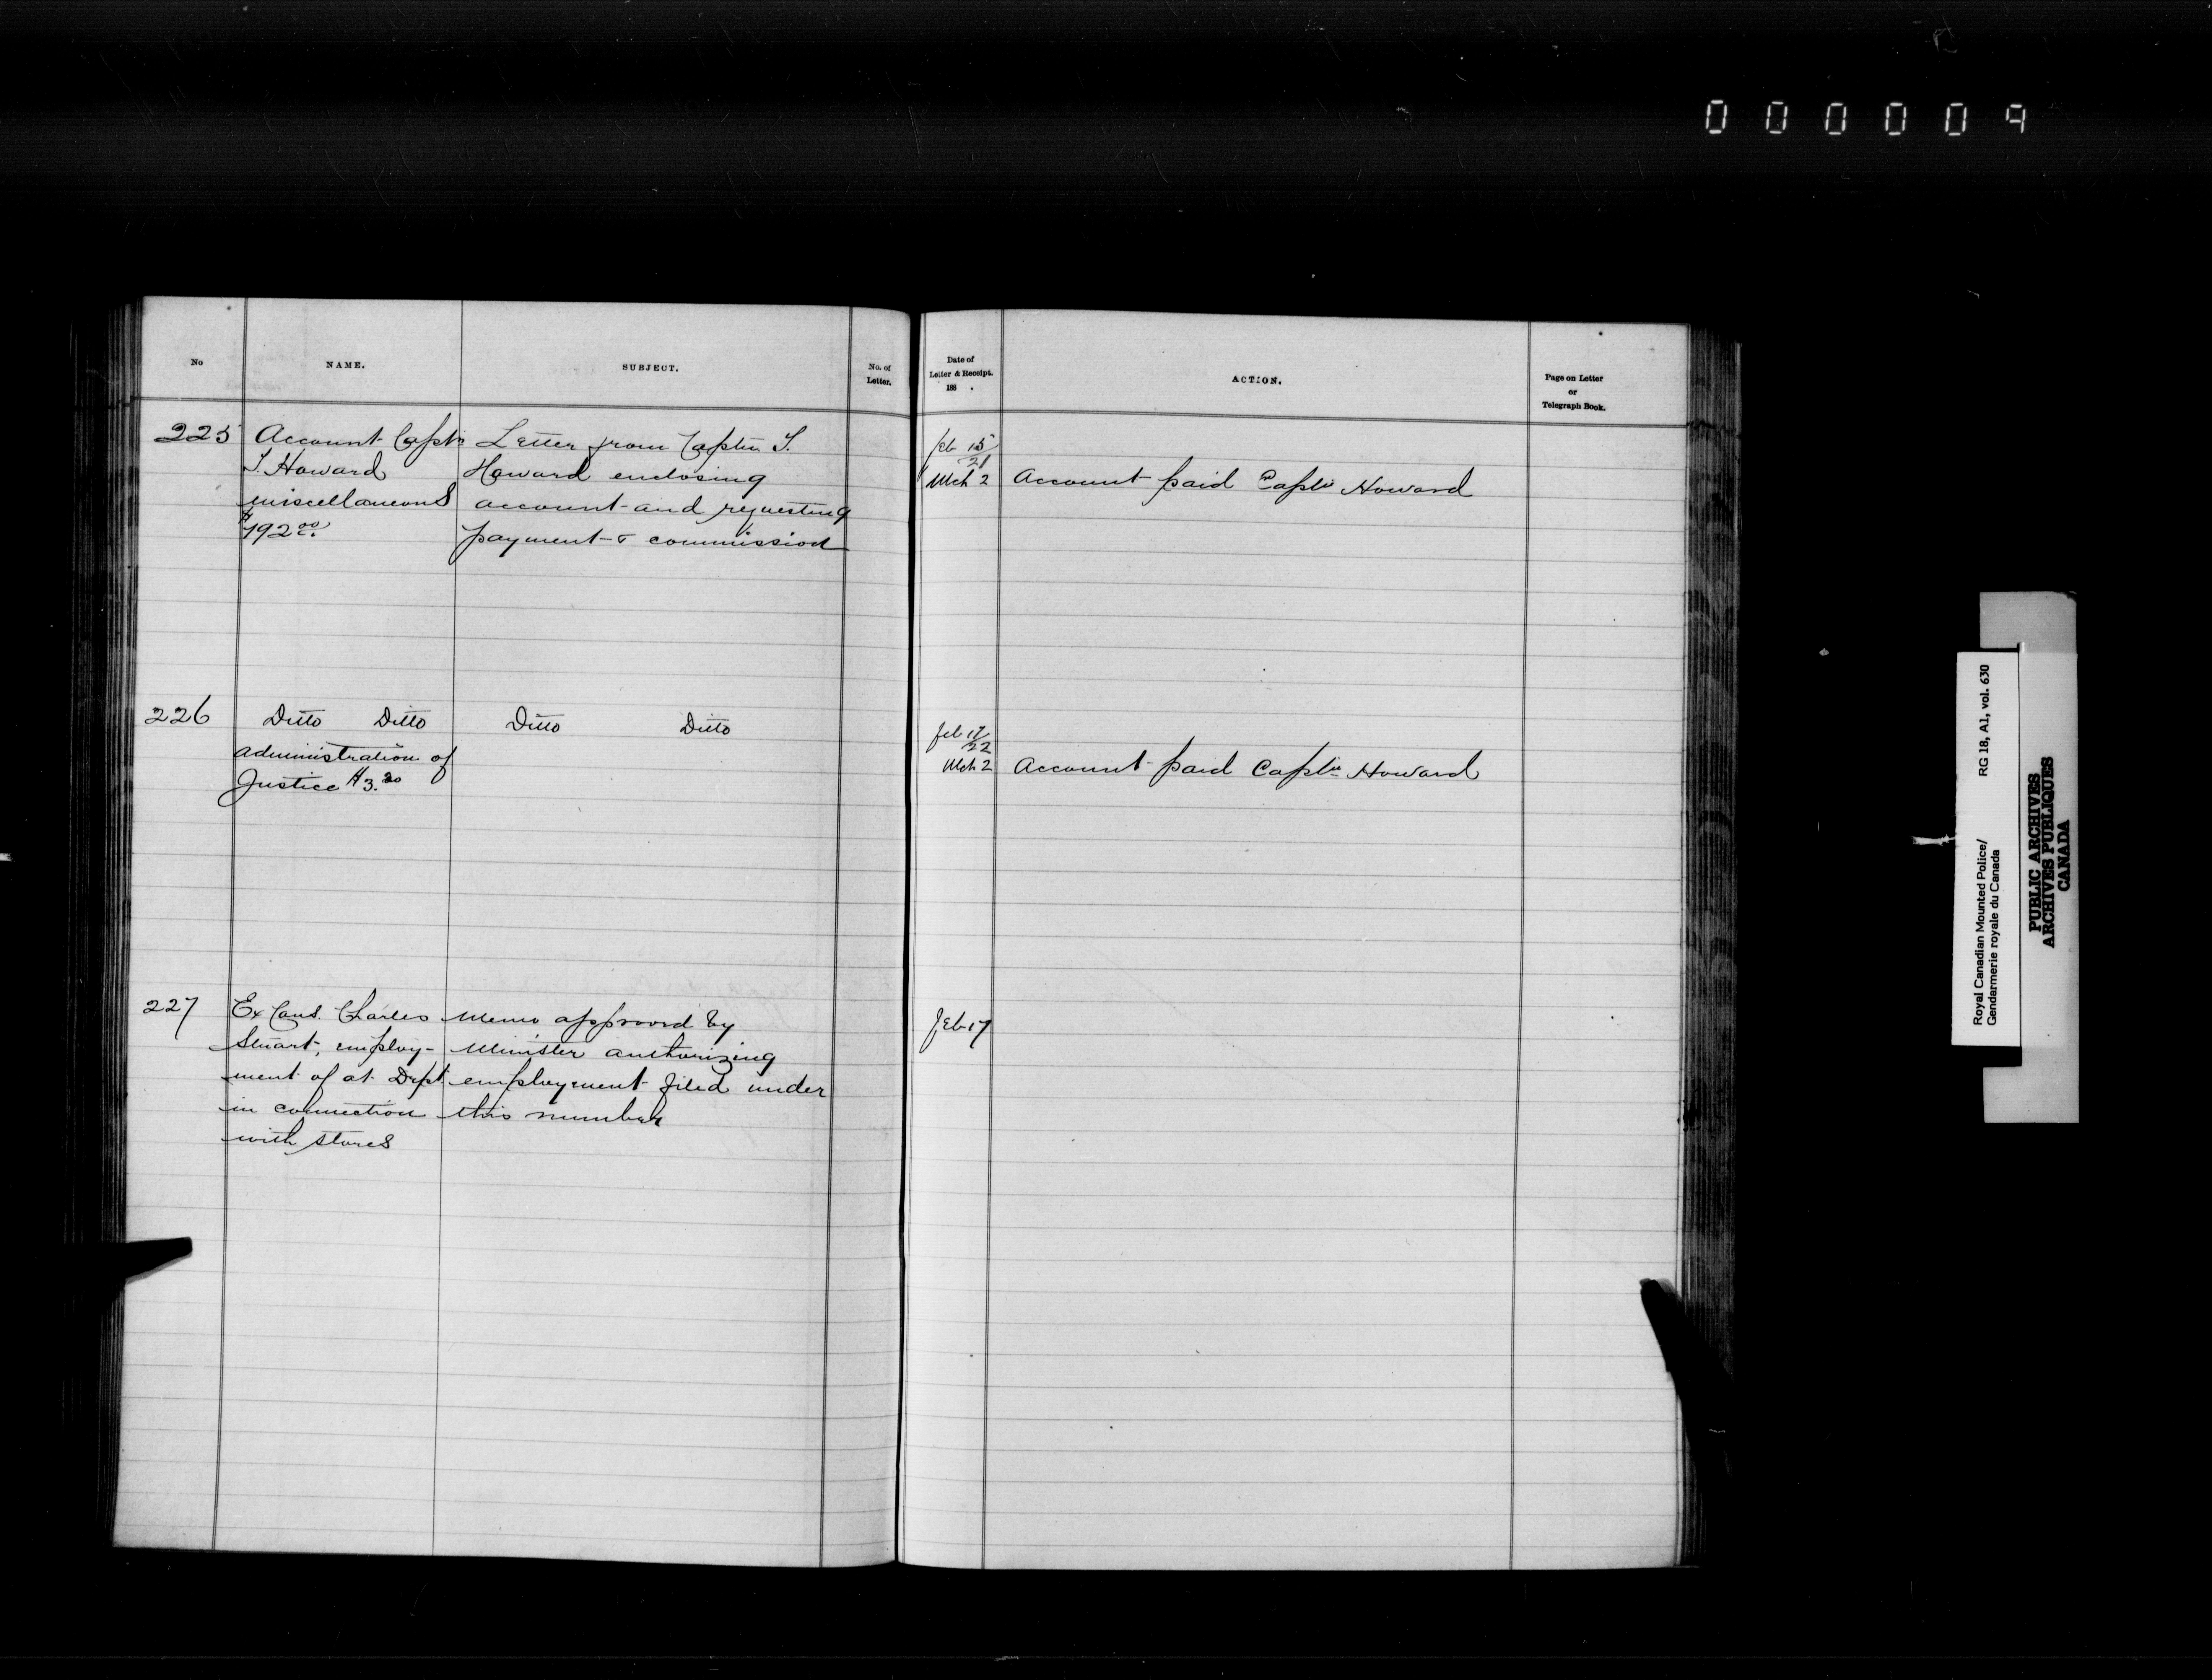 000009
No
NAME.
SUBJECT.
No. of
Letter.
Date of
Letter & Receipt.
188 .
ACTION.
Page on Letter
or
Telegraph Book.
225
Account Captn
T. Howard
miscellaneous
$192.00
Letter from Captn T.
Howard enclosing
account and requesting
payment & commission
Feb 15/21
Mch 2
Account paid Captn Howard
226
Ditto Ditto
administration of
Justice $3.20
Ditto Ditto
Feb 17/22
Mch 2
Account paid Captn Howard
227
Ex Cons. Charles
Stuart, employ-
ment of at Dept
in connection
with stores
Memo approved by
Minister authorizing
employment filed under
this number
Feb 17
Royal Canadian Mounted Police/ RG 18, A1, vol. 630
Gendarmerie royale du Canada
PUBLIC ARCHIVES
ARCHIVES PUBLIQUES
CANADA